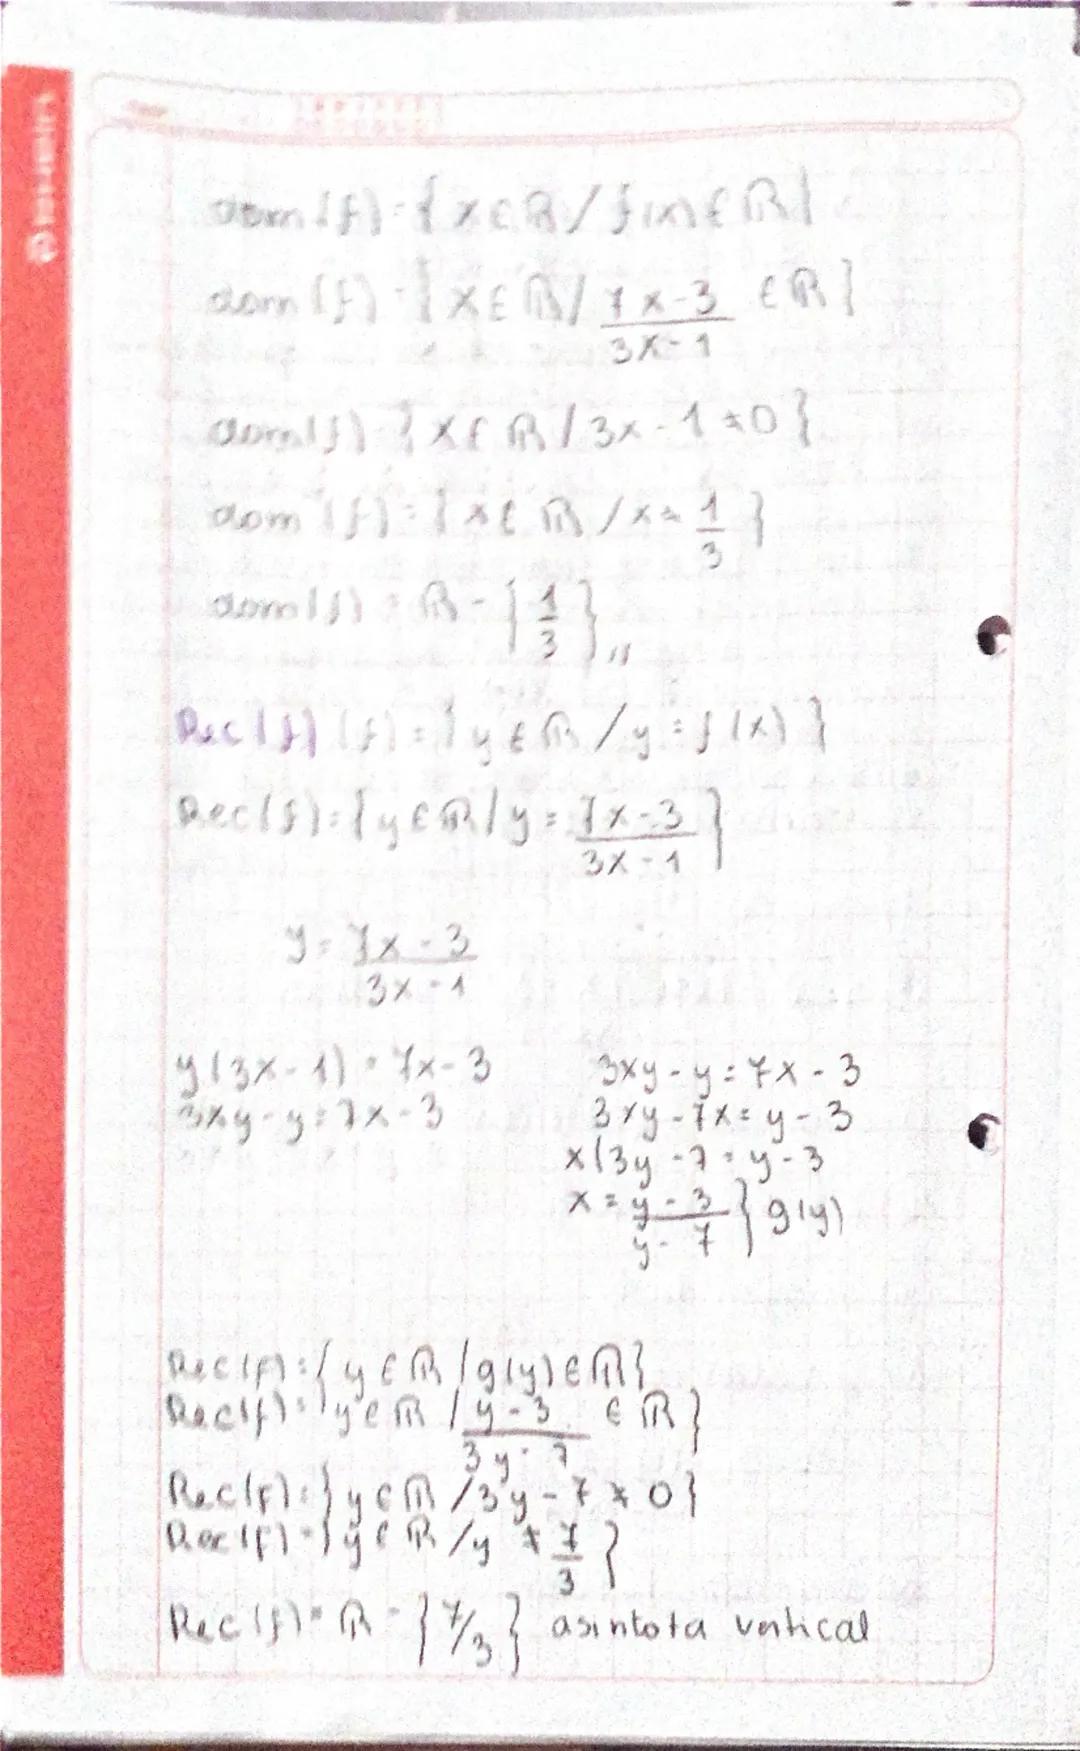 dom(f)={x∈ℝ/f(x)∈ℝ}
dom(f)={x∈ℝ/ (7x-3)/(3x-1) ∈ℝ}
dom(f)={x∈ℝ/3x-1≠0}
dom(f)={x∈ℝ/x≠ 1/3}
dom(f)=ℝ-{1/3},,
Rec(f) (f)={y∈ℝ/y=f(x)}
Rec(f)={y∈ℝ/y= (7x-3)/(3x-1)}
y= (7x-3)/(3x-1)
y(3x-1)=7x-3
3xy-y=7x-3
3xy-y=7x-3
3xy-7x=y-3
x(3y-7=y-3
x= (y-3)/(y-7) } g(y)
Rec(f)={y∈ℝ/g(y)∈ℝ}
Rec(f)={y∈ℝ/ (y-3)/(3y-7) ∈ℝ}
Rec(f)={y∈ℝ/3y-7≠0}
Rec(f)={y∈ℝ/y≠ 7/3}
Rec(f)=ℝ-{7/3} asintota vertical